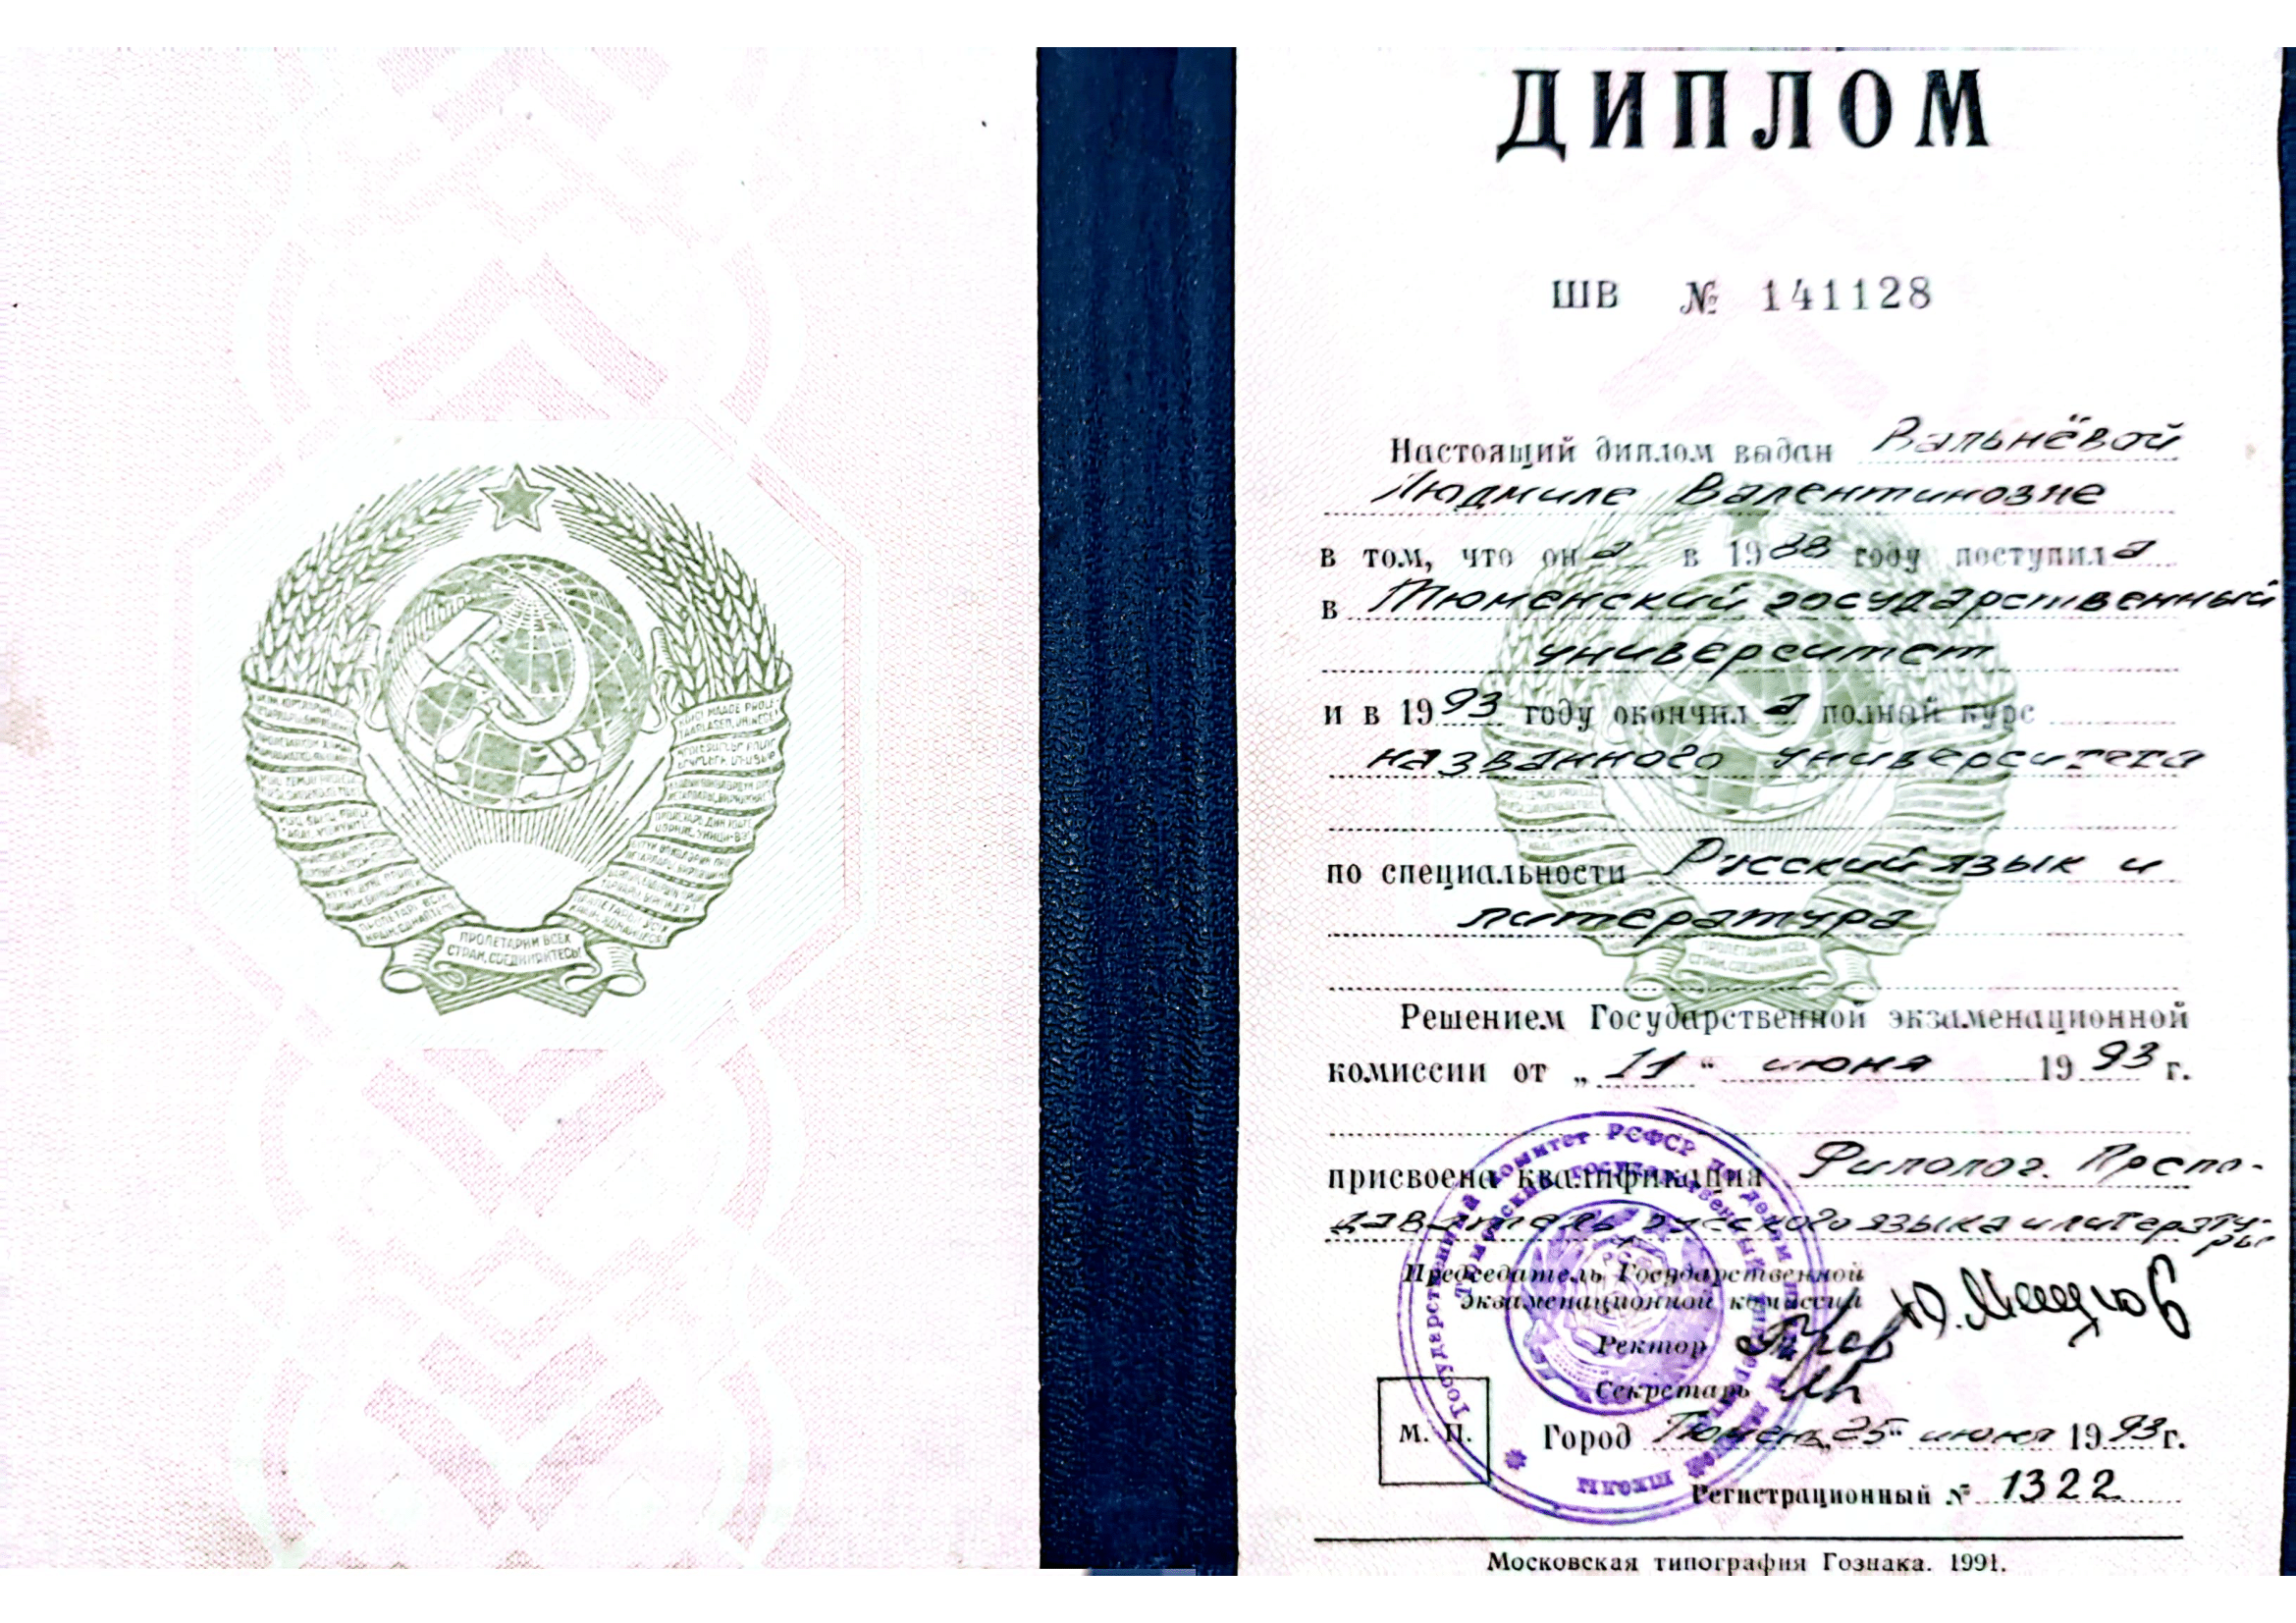 ПРОЛЕТАРИИ ВСЕХ
СТРАН, СОЕДИНЯЙТЕСЬ!
ДИПЛОМ
ШВ № 141128
Настоящий диплом выдан Вальнёвой
Людмиле Валентиновне
в том, что он а в 1988 году поступил а
в Тюменский государственный
университет
и в 1993 году окончил а полный курс
названного университета
по специальности Русский язык и
литература
Решением Государственной экзаменационной
комиссии от „11“ июня 1993 г.
присвоена квалификация Филолог. Препо-
даватель русского языка и литерату-
ры
Председатель Государственной
экзаменационной комиссии
Ректор
Секретарь
М. П.
Город Тюмень „25“ июня 1993 г.
Регистрационный № 1322
Государственный комитет РСФСР по делам науки и высшей школы
Тюменский государственный университет
Московская типография Гознака. 1991.